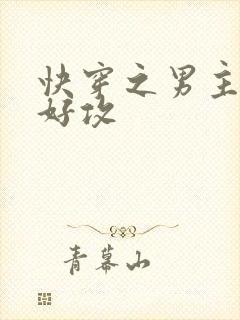 快穿之男主
好攻
青幕山